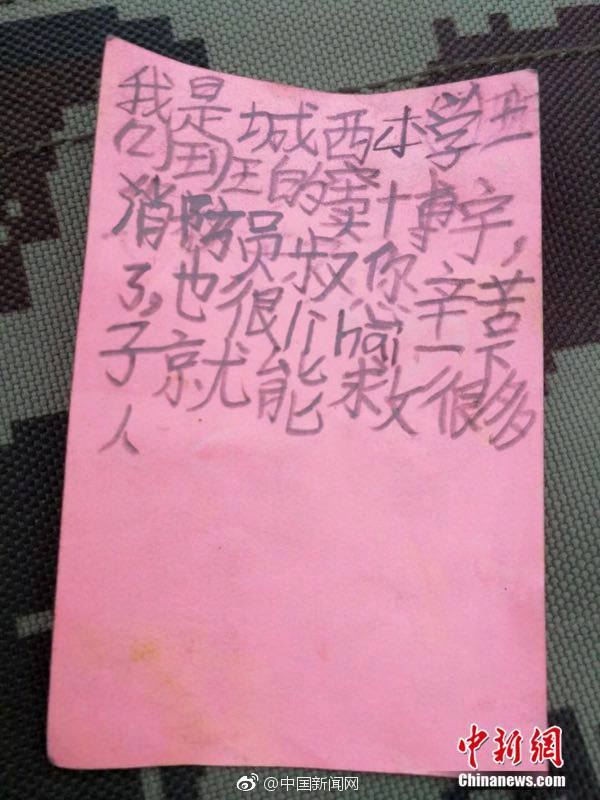 我是城西小学
班的窦博宇,
消防员叔你辛苦
了,也很 hai 一下
子就能救很多
人
@中国新闻网
中新網
Chinanews.com